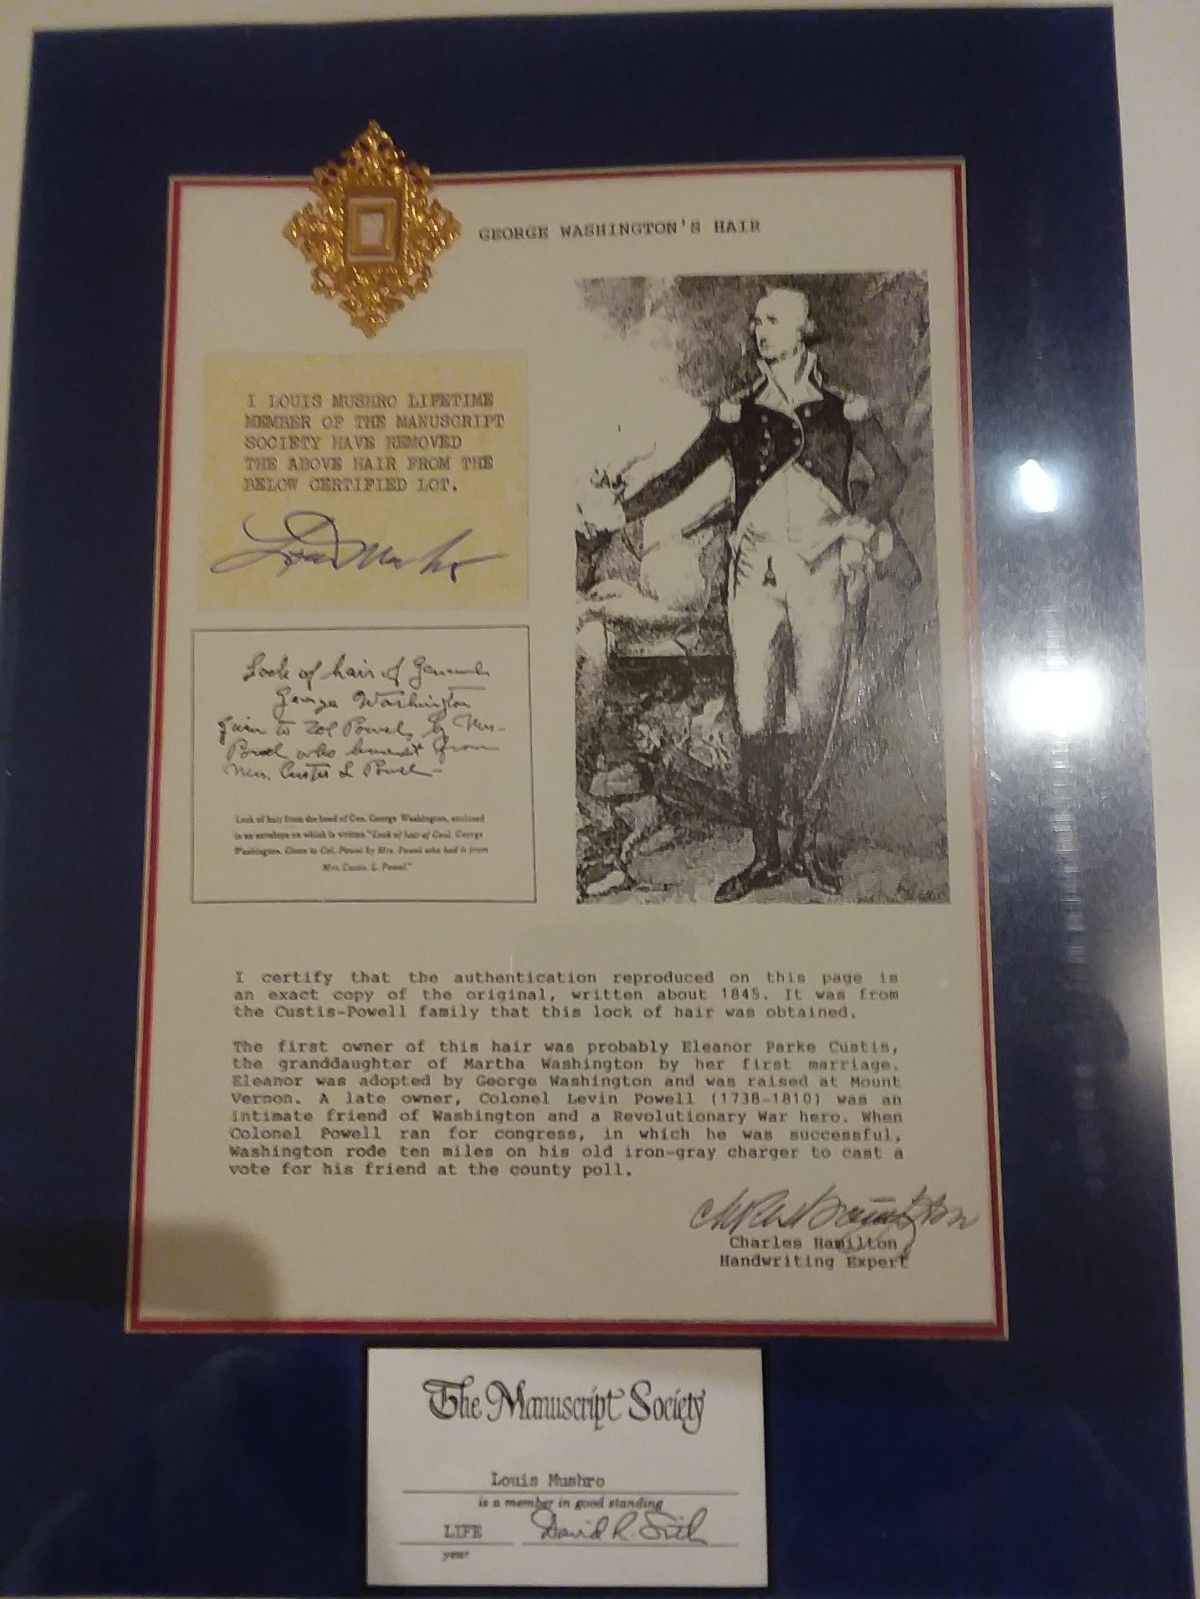 GEORGE WASHINGTON'S HAIR
I LOUIS MUSHRO LIFETIME
MEMBER OF THE MANUSCRIPT
SOCIETY HAVE REMOVED
THE ABOVE HAIR FROM THE
BELOW CERTIFIED LOT.
Louis Mushro
Lock of hair of General
George Washington
Given to Col Powel, by Mrs.
Powel who had it from
Mrs. Custis L Powel-
Lock of hair from the head of Gen. George Washington, enclosed
in an envelope on which is written "Lock of hair of Genl. George
Washington. Given to Col. Powel by Mrs. Powel who had it from
Mrs. Custis. L. Powel."
I certify that the authentication reproduced on this page is
an exact copy of the original, written about 1845. It was from
the Custis-Powell family that this lock of hair was obtained.
The first owner of this hair was probably Eleanor Parke Custis,
the granddaughter of Martha Washington by her first marriage.
Eleanor was adopted by George Washington and was raised at Mount
Vernon. A late owner, Colonel Levin Powell (1738-1810) was an
intimate friend of Washington and a Revolutionary War hero. When
Colonel Powell ran for congress, in which he was successful,
Washington rode ten miles on his old iron-gray charger to cast a
vote for his friend at the county poll.
Charles Hamilton
Handwriting Expert
The Manuscript Society
Louis Mushro
is a member in good standing
LIFE David R. Smith
year